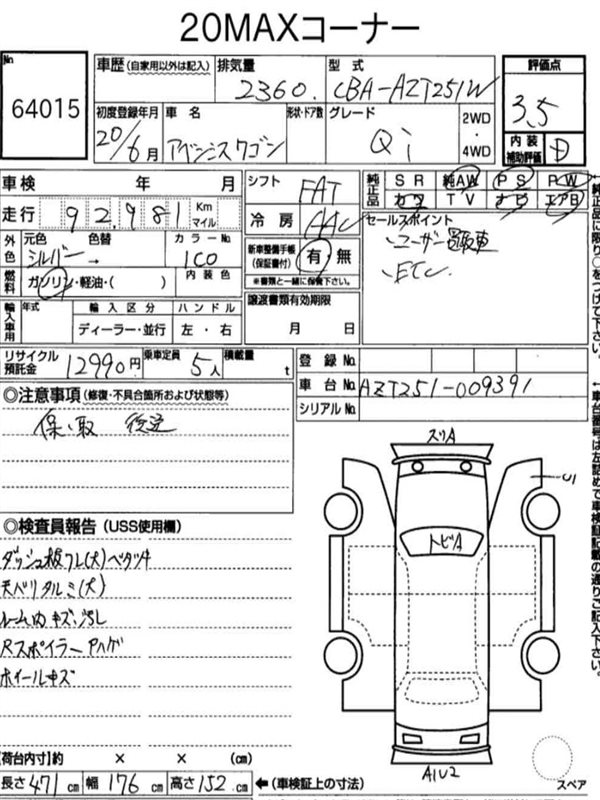 20MAXコーナー
No 64015
車歴 (自家用以外は記入) 排気量 2360. 型式 CBA-AZT251W
初度登録年月 20/6月 車名 アベンシスワゴン 形状・ドア数 グレード Qi 2WD・4WD
評価点 3.5
内装補助評価 D
車検 年 月
走行 92,981 Km マイル
外色 元色 シルバー → 色替 カラーNo. 1C0
燃料 ガソリン・軽油・( ) 内装色
輸入車用 年式 輸入区分 ディーラー・並行 ハンドル 左・右
シフト FAT
冷房 AAC
新車整備手帳(保証書付) 有・無
※書類と一緒に保管下さい。
譲渡書類有効期限 月 日
純正品 SR 純AW PS PW
カワ TV ナビ エアB
セールスポイント
・ユーザー買取車
・ETC.
リサイクル預託金 12990円 乗車定員 5人 積載量 t
登録No.
車台No. AZT251-009391
シリアルNo.
◎注意事項 (修復・不具合箇所および状態等)
保、取 後送
◎検査員報告 (USS使用欄)
ダッシュ板フレ(大)ベタツキ
天バリタルミ(大)
ルーム内キズ、汚レ
Rスポイラーアハゲ
ホイールキズ
スリA
U1
トビA
A1U2
スペア
【荷台内寸】約 × × (cm)
長さ 471 cm 幅 176 cm 高さ 152 cm ←(車検証上の寸法)
純正品に限り○をつけて下さい。
←車台番号は左詰めで車検証記載の通りご記入下さい。